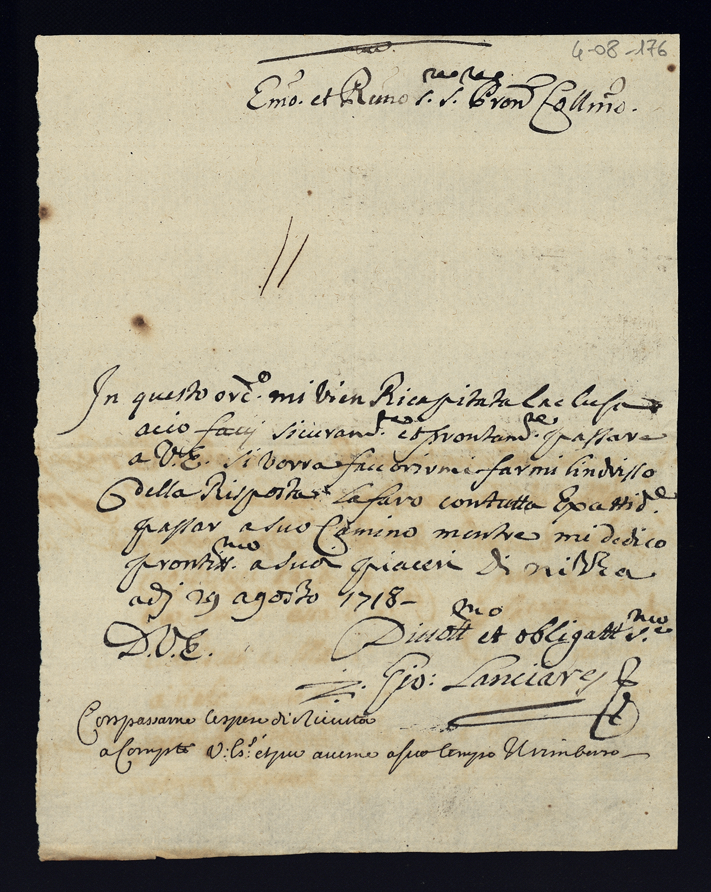 4-08-176
Emo. et Rmo s.r s.r Pron Collmo.
In questo ord.o mi vien Ricapitata Laclusa
acio facij sicuram.te et prontam.te passare
a V.E. si vorra faccorirmi farmi lindrisso
della Risposta la faro contutta
passar a suo Camino mentre mi dedico
prontiss.mo a suoi piaceri Di
adj 29 agosto 1718-
D.V.E. Diuott.mo et obligatt.mo s.re
Gio: Lanciares
Compassame lespese di Riceuta
a Compto et piu aueme a suo tempo